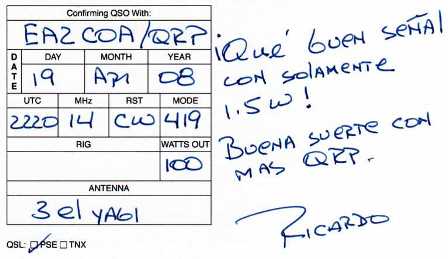 Confirming QSO With:
EA2COA/QRP
DATE
DAY MONTH YEAR
19 Apr 08
UTC MHz RST MODE
2220 14 CW 419
RIG WATTS OUT
100
ANTENNA
3 el YAGI
QSL: ☑ PSE ☐ TNX
¡Qué buen SEÑAL
CON SOLAMENTE
1.5 W!
BUENA SUERTE CON
MAS QRP.
RICARDO